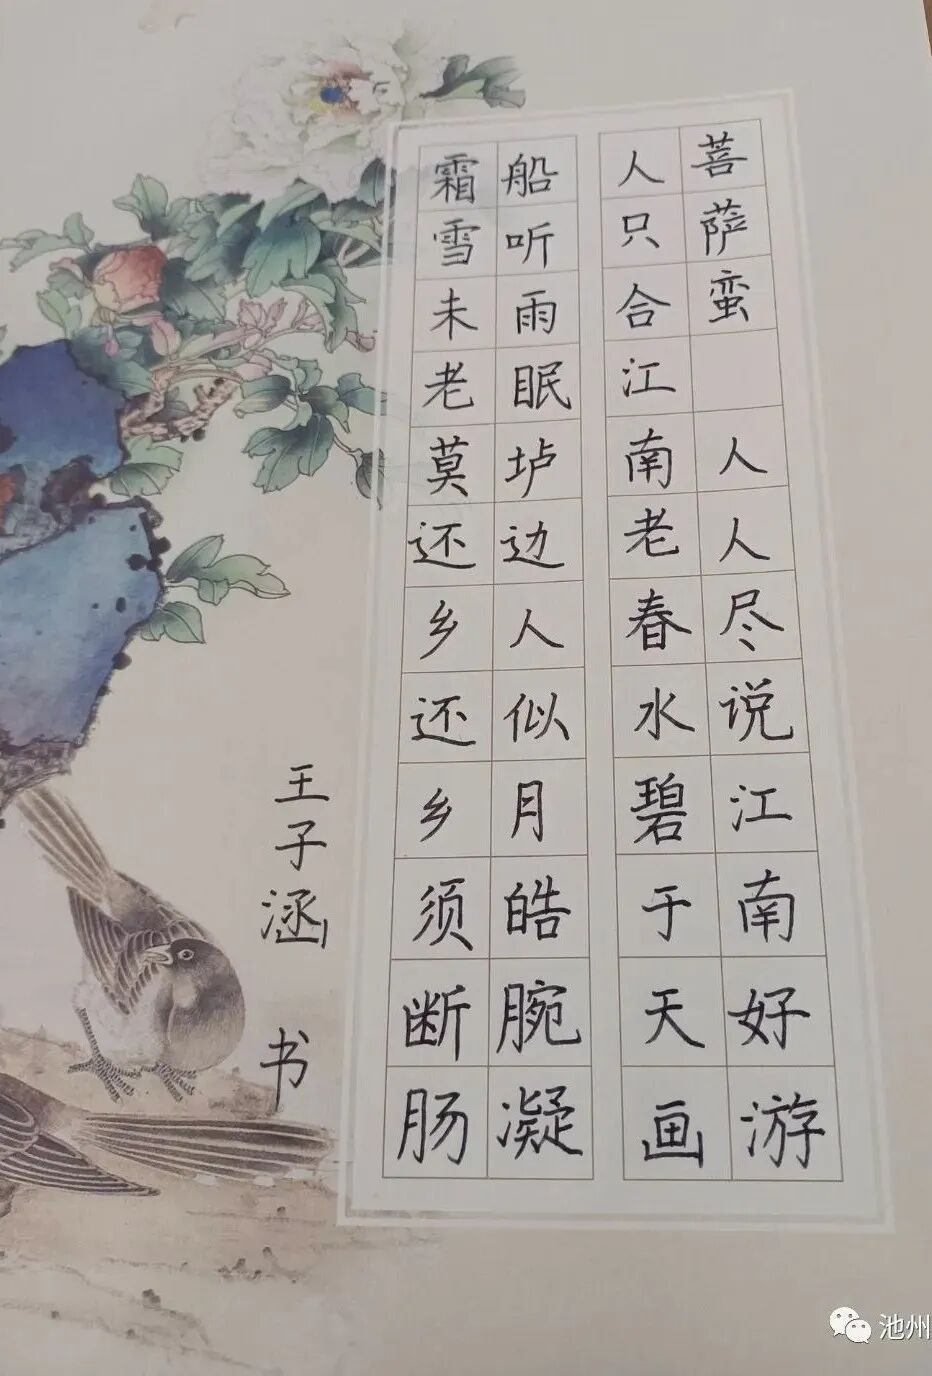 菩萨蛮 人人尽说江南好游
人只合江南老春水碧于天画
船听雨眠垆边人似月皓腕凝
霜雪未老莫还乡还乡须断肠
王子涵 书
池州